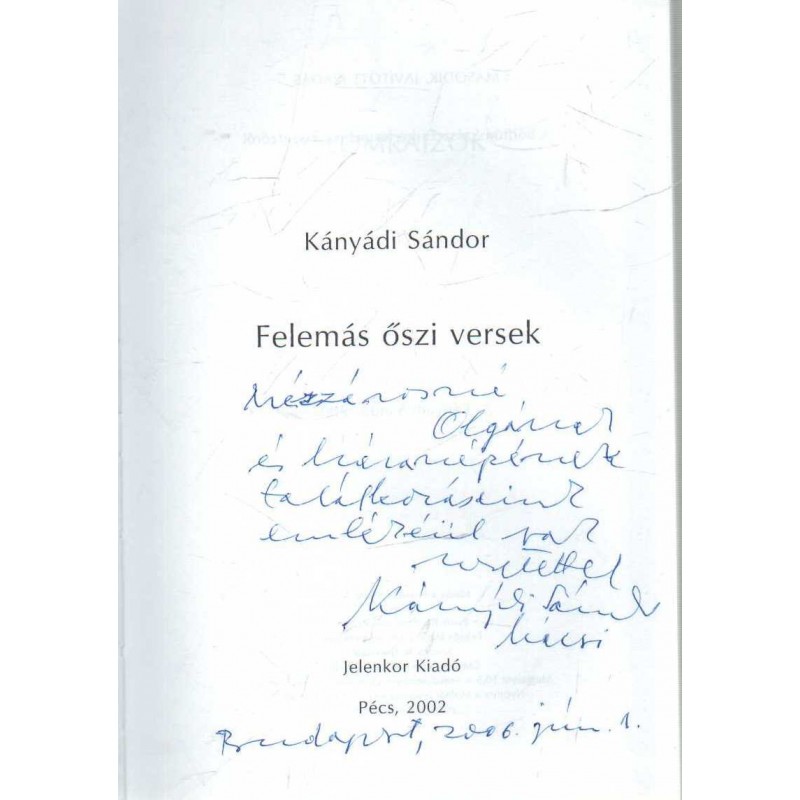 Kányádi Sándor
Felemás őszi versek
Mészárosné
Olgának
és háranépének
találkozásaink
emlékéül sok
szeretettel
Kányádi Sándor
bácsi
Jelenkor Kiadó
Pécs, 2002
Budapest, 2006. jún. 1.